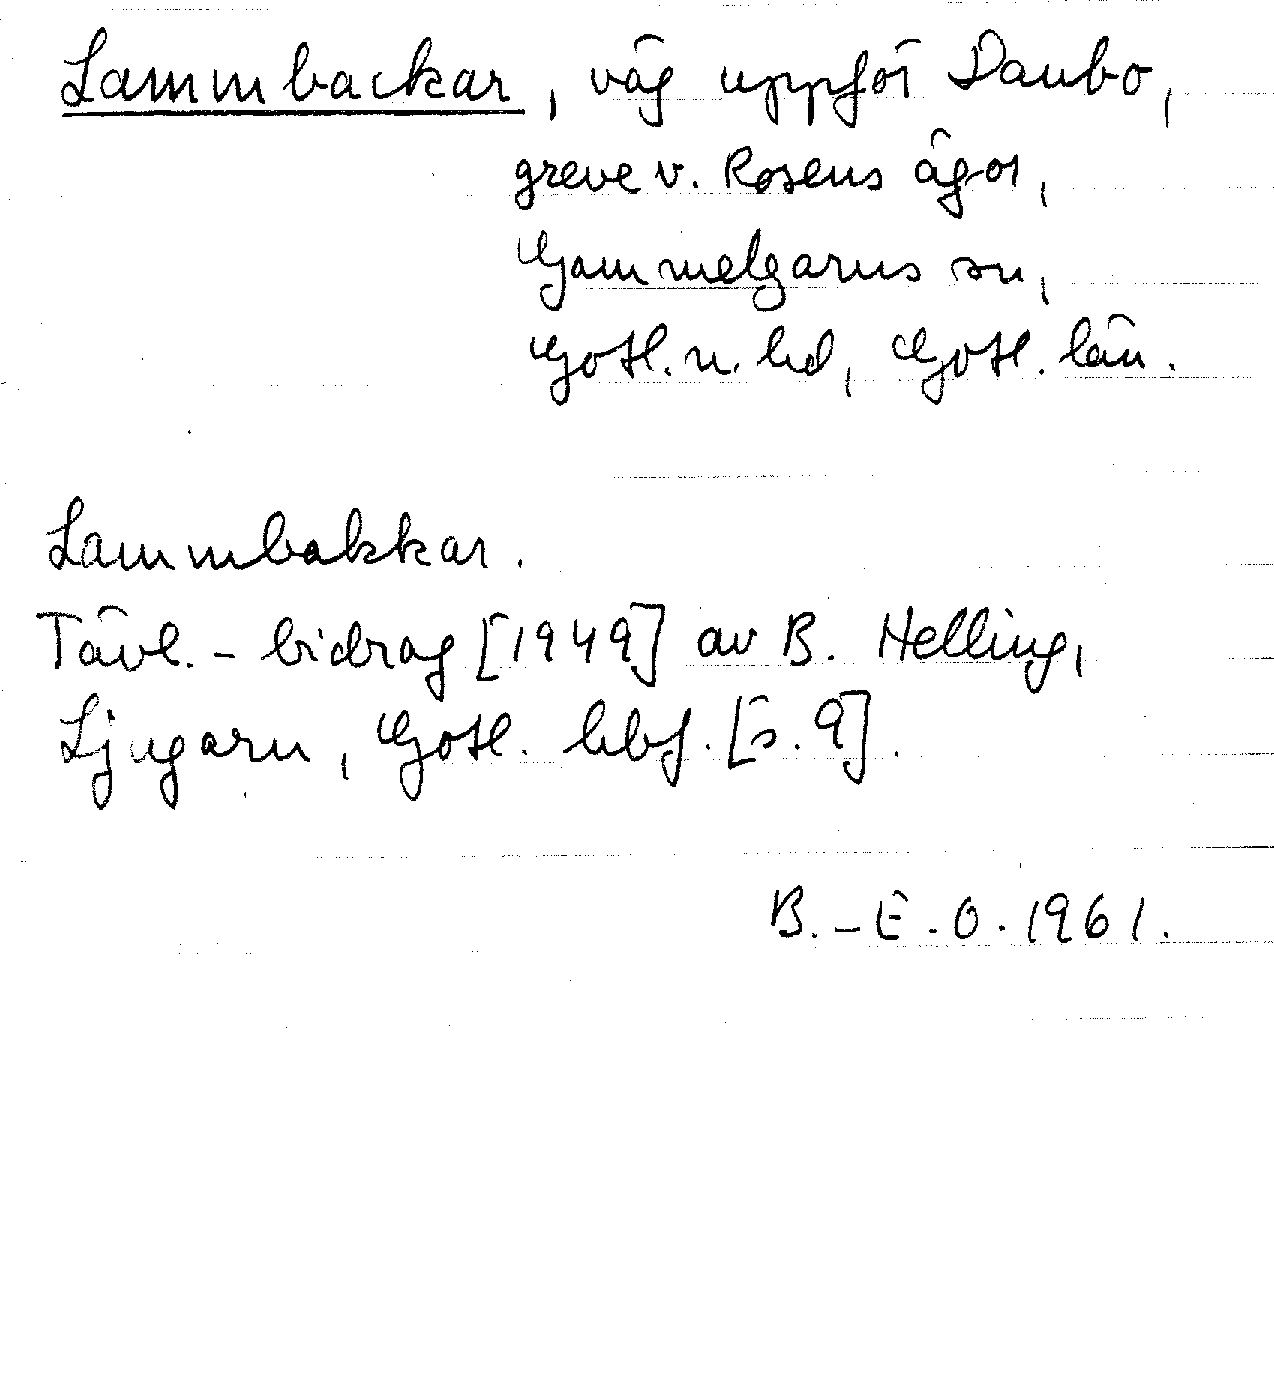 Lammbackar, väg uppför Danbo,
greve v. Rosens ägor,
Gammelgarns sn,
Gotl. n. hd, Gotl. län.
Lammbakkar.
Tävl.-bidrag [1949] av B. Helling,
Ljugarn, Gotl. hbf. [s. 9].
B.-E.O. 1961.